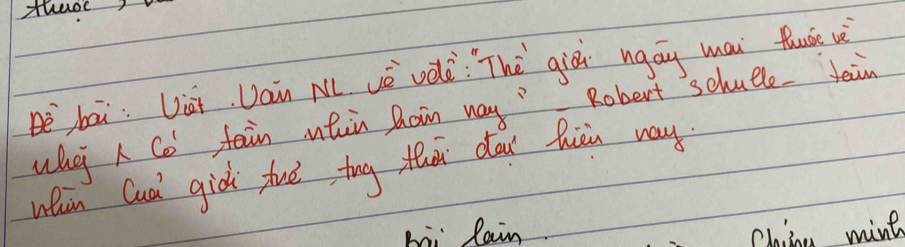 thuộc
Đề bài: Viết Văn NL về vđề: "Thế giới ngày mai thuộc về
có tầm nhìn hôm nay" - Robert Schulle - tầm
nhìn của giới trẻ tng thời đại hiện nay.
Bài làm
Chứng minh